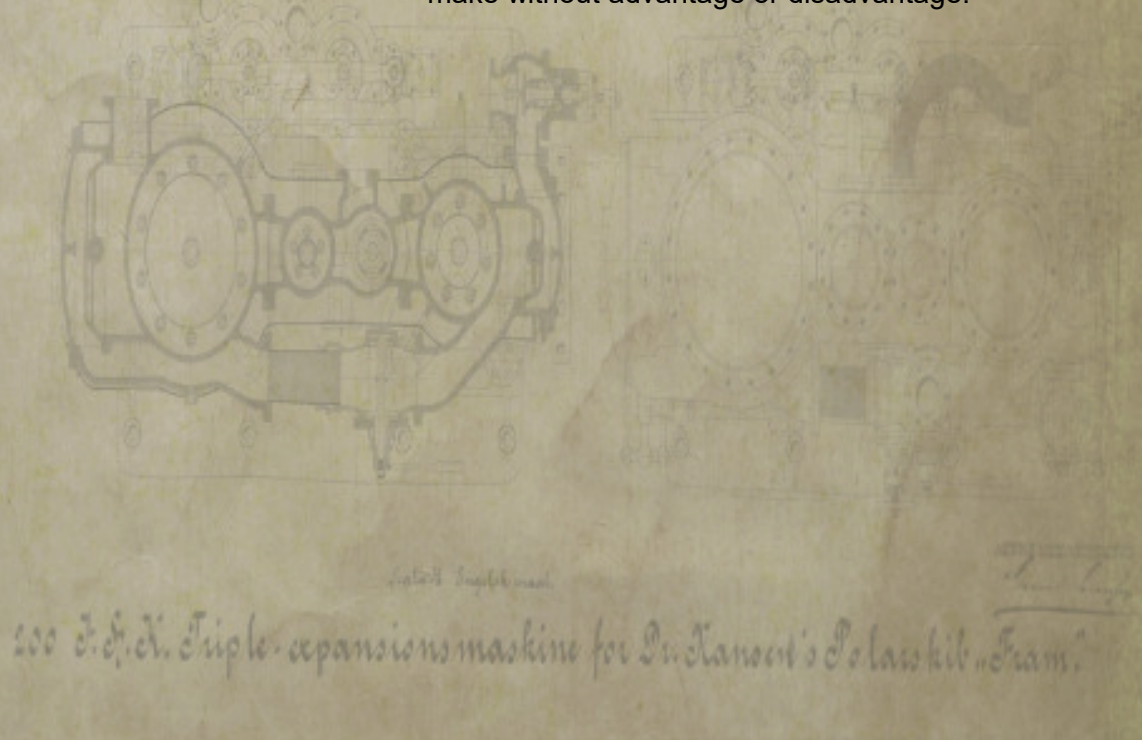 make without advantage or disadvantage.
200 I.H.K. Triple-expansionsmaskine for Dr. Nansen's Polarskib „Fram.”